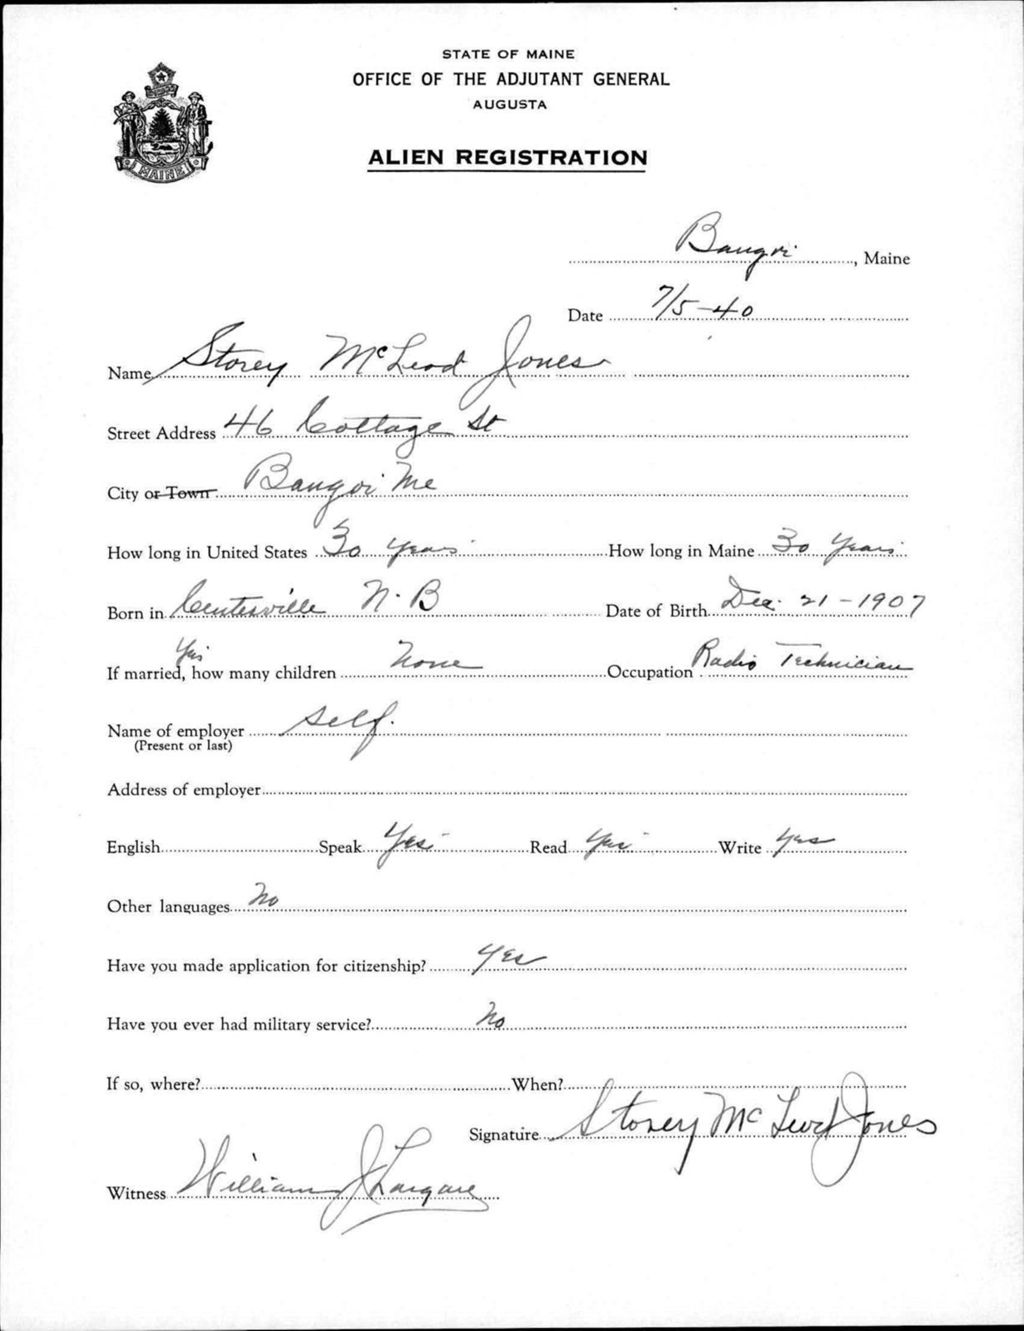 STATE OF MAINE
OFFICE OF THE ADJUTANT GENERAL
AUGUSTA
ALIEN REGISTRATION
MAINE
Bangor, Maine
Date 7/5-40
Name Storey McLeod Jones
Street Address 46 Cottage St
City or Town Bangor Me
How long in United States 30 years How long in Maine 30 years
Born in Centerville N.B Date of Birth Dec. 21-1907
Yes
If married, how many children None Occupation Radio Technician
Name of employer self.
(Present or last)
Address of employer
English Speak Yes Read Yes Write Yes
Other languages No
Have you made application for citizenship? Yes
Have you ever had military service? No
If so, where? When?
Signature Storey McLeod Jones
Witness William J